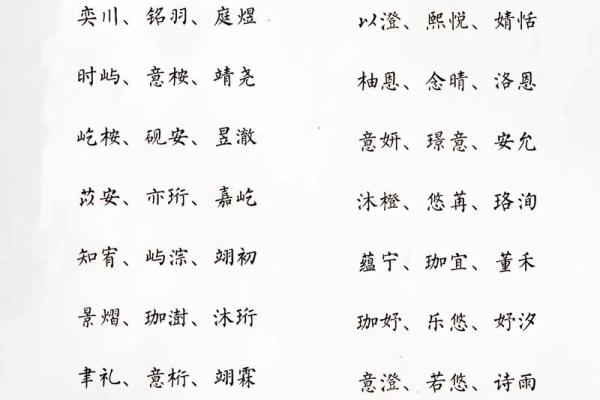 奕川、铭羽、庭煜
时屿、意桉、靖尧
屹桉、砚安、昱澈
苡安、亦珩、嘉屹
知宥、屿淙、翊初
景熠、珈澍、沐珩
聿礼、意桁、翊霖
以澄、熙悦、婧恬
柚恩、念晴、洛恩
意妍、璟意、安允
沐橙、悠苒、珞洵
蕴宁、珈宜、董禾
珈妤、乐悠、妤汐
意澄、若悠、诗雨